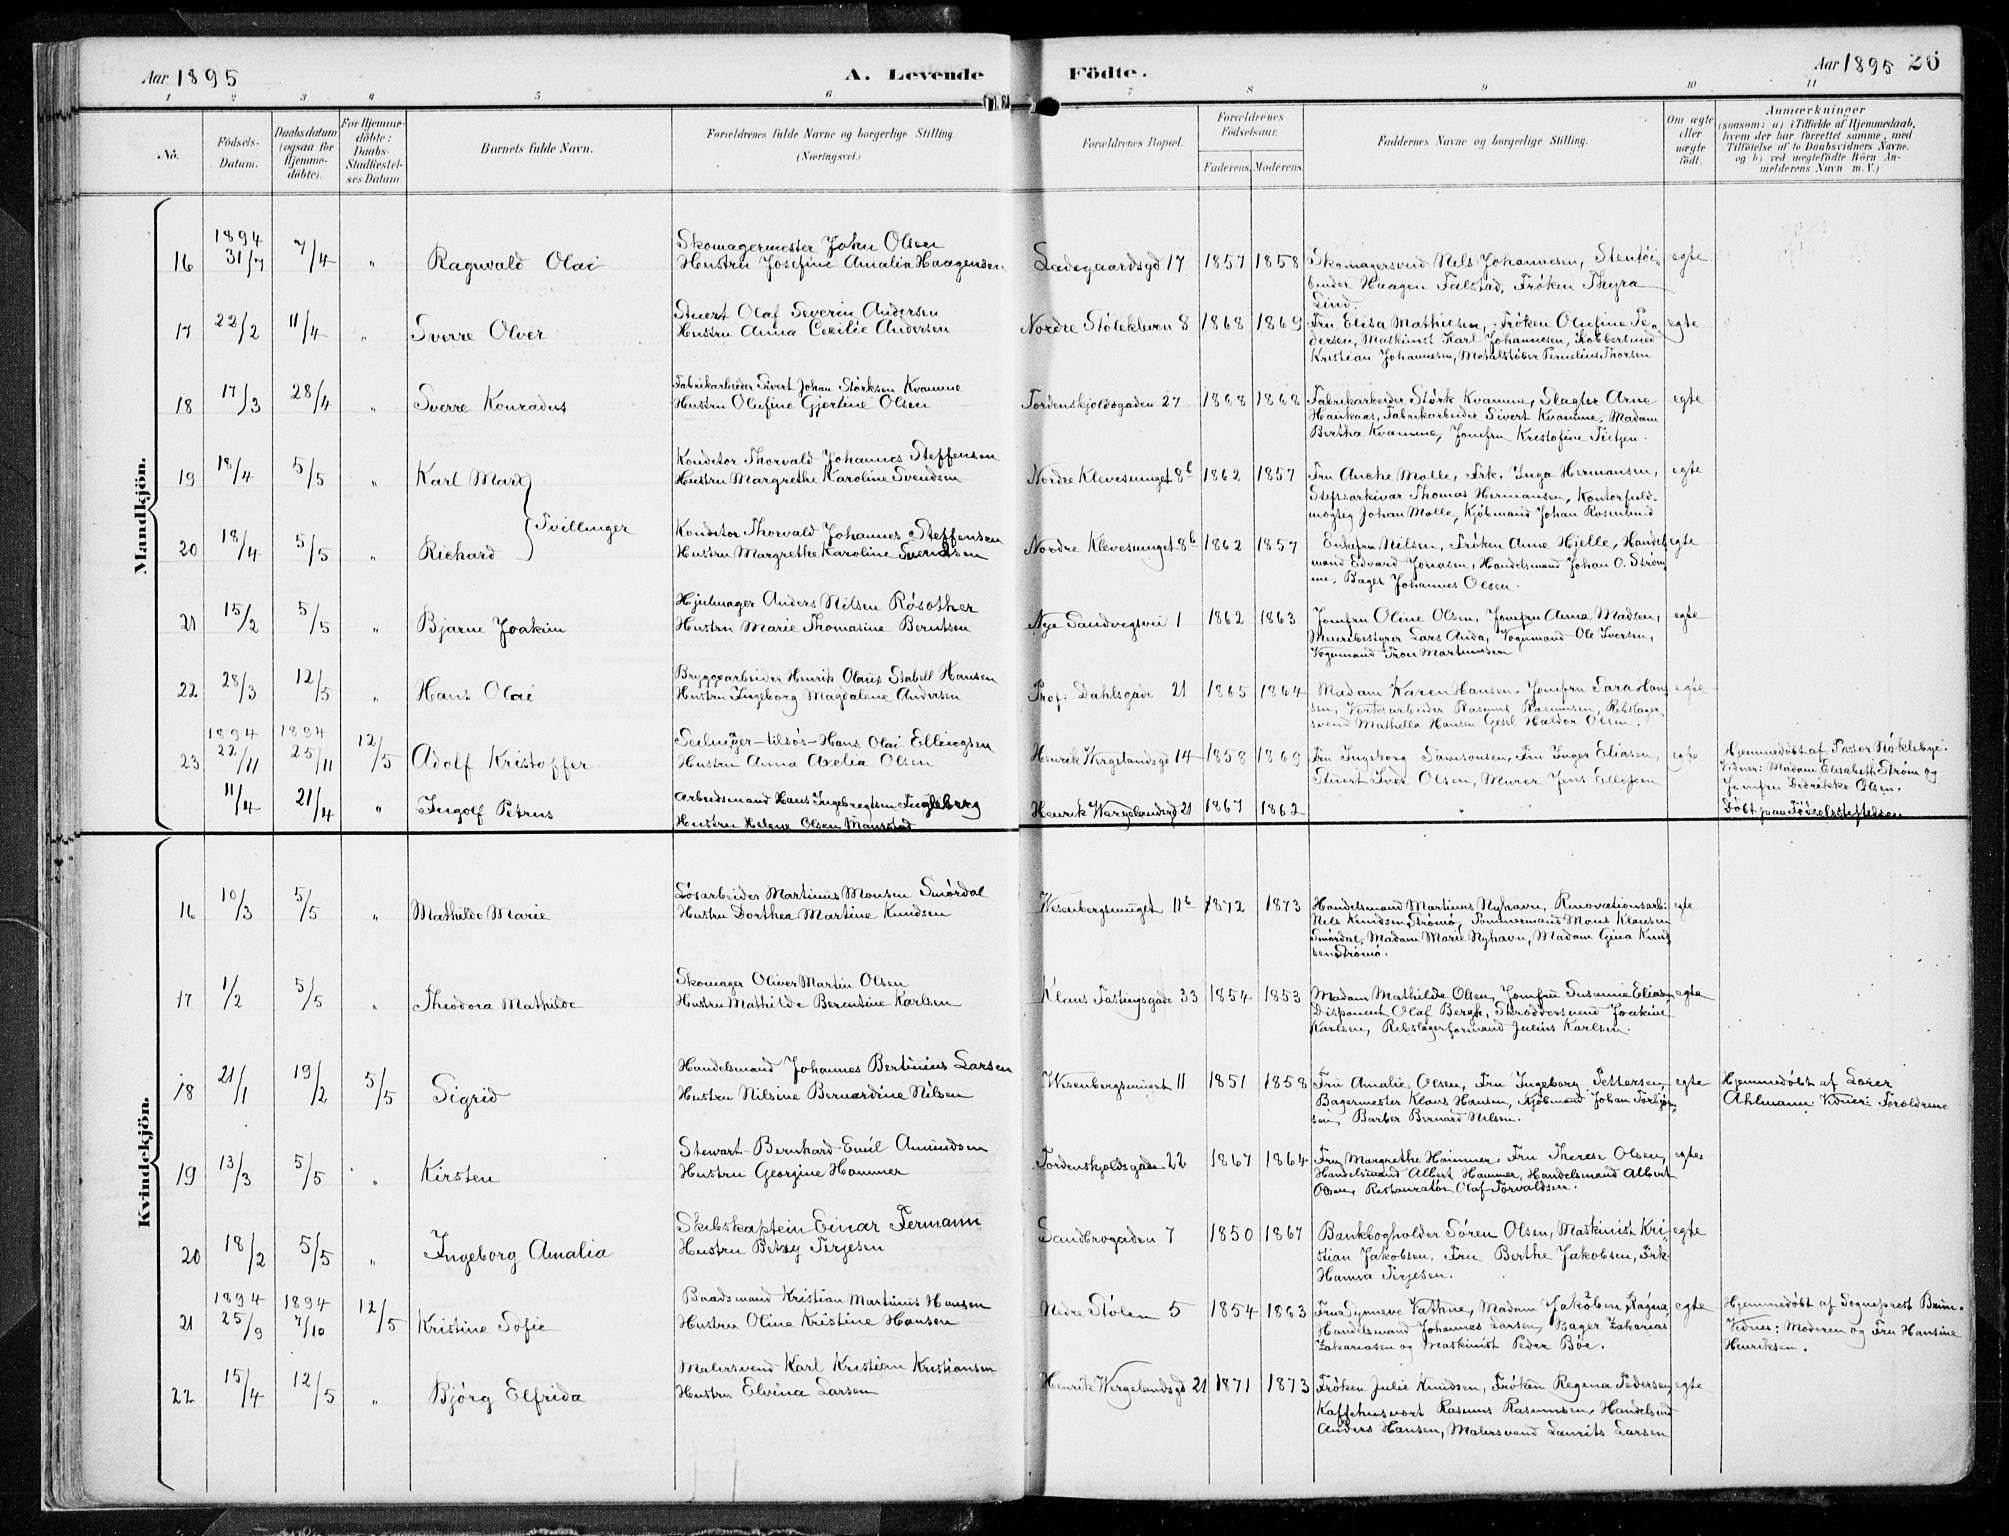 Aar 1895 A. Levende Födte. Aar 1895 26
1 2 3 4 5 6 7 8 9 10 11
No. Födsels-Datum. Daabsdatum (ogsaa for Hjemme-döbte). For Hjemme-döbte: Daabs-Stadfæstel-ses Datum. Barnets fulde Navn. Forældrenes fulde Navne og borgerlige Stilling. (Næringsvei.) Forældrenes Bopæl. Forældrenes Födselsaar. Faderens. Moderens. Faddernes Navne og borgerlige Stilling. Om ægte eller uægte födt. Anmærkninger (saasom: a) i Tilfælde af Hjemmedaab, hvem der har forrettet samme, med Tilföielse af to Daabsvidners Navne. og b) ved uægtefödte Börn An-melderens Navn m. V.)
Mandkjön.
16 1894 31/7 7/4 " Ragnvald Olai
Skomagermester John Olsen
Hustru Josefine Amalia Haagensen
Ladegaardsgd 17 1857 1858
Skomagersvend Nils Johannesen, Stentöi-
binder Haagen Falstad, Fröken Thyra
Lind.
egte
17 22/2 11/4 " Sverre Olver
Stuert Olaf Severin Andersen
Hustru Anna Cecilie Andersen
Nordre Stölekleven 8 1868 1869
Fru Elisa Mathiesen, Fröken Olufine Pe-
dersen, Maskinist Karl Johannesen, Kobbersmed
Kristian Johannesen, Metalstöber Pernelius Thorsen
egte
18 17/3 28/4 " Sverre Konradus
Fabrikarbeider Sivert Johan Störksen Kvamme
Hustru Olufine Gjertine Olsen
Tordenskjoldsgaden 27 1868 1868
Fabrikarbeider Störk Kvamme, Slagter Arne
Haukaas, Fabrikarbeider Sivert Kvamme, Madam
Bertha Kvamme, Jomfru Kristofine Tietjen.
egte
19 18/4 5/5 " Karl Marx
Konditor Thorvald Johannes Steffensen
Hustru Margrethe Karoline Svendsen
Nordre Klevesmuget 8b 1862 1857
Fru Anche Molle, Frk. Inga Hermansen,
Stiftsarkivar Thomas Hermansen, Kontorfuld-
mægtig Johan Molle, Kjöbmand Johan Rosenlund
egte
Tvillinger
20 18/4 5/5 " Richard
Konditor Thorvald Johannes Steffensen
Hustru Margrethe Karoline Svendsen
Nordre Klevesmuget 8b 1862 1857
Enkefru Nilsen, Fröken Anne Hjelle, Handels
mand Edvard Jonasen, Handelsmand Johan O. Ström
me, Bager Johannes Olsen.
egte
21 15/2 5/5 " Bjarne Joakim
Hjulmager Anders Nilsen Rösother
Hustru Marie Thomasine Berntsen
Nye Sandvigsvei 1 1862 1863
Jomfru Oline Olsen, Jomfru Anna Madsen,
Meieribestyrer Lars Anda, Vognmand Ole Iversen,
Vognmand Tron Martinusen
egte
22 28/3 12/5 " Hans Olai
Bryggearbeider Henrik Olaus Stabell Hansen
Hustru Ingeborg Magdalene Andersen
Prof: Dahlsgade 21 1865 1864
Madam Karen Hansen, Jomfru Sara Han
sen, Verksarbeider Rasmus Rasmusen, Rebslager-
svend Mathella Hansen Gesel Haldor Olsen.
egte
23 1894 22/11 1894 25/11 12/5 Adolf Kristoffer
Salmager-tilsös-Hans Olai Ellingsen
Hustru Anna Axelia Olsen
Henrik Wergelandsgd 14 1858 1869
Fru Ingeborg Samsonsen, Fru Inger Eliasen,
Stuert Iver Olsen, Murer Jens Ellefsen
egte
Hjemmedöbt af Pastor Nöklebye.
Vidner: Madam Elisabeth Ström og
Jomfru Didrikke Olsen.
11/4 21/4 " Ingolf Petrus
Arbeidsmand Hans Ingebregtsen Fugleberg
Hustru Helene Olsen Monsstad
Henrik Wergelandsgd 21 1867 1862 "
Döbt paa Födselsstiftelsen
Kvindekjön.
16 10/3 5/5 " Mathilde Marie
Lösarbeider Martinus Monsen Smördal
Hustru Dorthea Martine Knudsen
Wesenbergsmuget 11b 1872 1873
Handelsmand Martinus Nyhavn, Renovationsarb:
Nils Knudsen Strömö, Tömmermand Mons Klausen
Smördal, Madam Marie Nyhavn, Madam Gina Knud
sen Strömö.
egte
17 1/2 5/5 " Theodora Mathilde
Skomager Oliver Martin Olsen
Hustru Mathilde Berentine Karlsen
Klaus Fastingsgade 33 1854 1853
Madam Mathilde Olsen, Jomfru Susanne Eliasen
Disponent Olaf Bergh, Skröddersvend Joakim
Karlsen, Rebslagerformand Julius Karlsen.
egte
18 21/1 19/2 5/5 Sigrid
Handelsmand Johannes Bertinius Larsen
Hustru Nilsine Bernardine Nilsen
Wesenbergsmuget 11 1851 1858
Fru Amalie Olsen, Fru Ingeborg Pettersen,
Bagermester Klaus Hansen, Kjöbmand Johan Torbjör
sen, Barber Bernard Nilsen.
egte
Hjemmedöbt af Lærer
Ahlmann. Vidner: Foröldrene
19 13/3 5/5 " Kirsten
Stewart Bernhard Emil Amundsen
Hustru Georgine Hammer
Tordenskjoldsgade 22 1867 1864
Fru Margrethe Hammer, Fru Therese Olsen,
Handelsmand Albert Hammer, Handelsmand Albert
Olsen, Restauratör Olaf Torvaldsen.
egte
20 18/2 5/5 " Ingeborg Amalia
Skibskaptein Einar Fermann
Hustru Betzy Terjesen
Sandbrogaden 7 1850 1867
Bankbogholder Sören Olsen, Maskinist Kri-
stian Jakobsen, Fru Berthe Jakobsen, Frk
Hanna Terjesen.
egte
21 1894 25/9 1894 7/10 12/5 Kristine Sofie
Baadsmand Kristian Martinus Hansen
Hustru Oline Kristine Hansen
Nedre Stölen 5 1854 1863
Frua Synneve Vathne, Madam Jakobsen, Ragna
Handelsmand Johannes Larsen, Bager Zakarias
Zakariasen og Maskinist Peder Böe.
egte
Hjemmedöbt af Sogneprest Brun.
Vidnes: Moderen og Fru Hansine
Henriksen.
22 15/4 12/5 " Bjórg Elfrida
Malersvend Karl Kristian Kristiansen
Hustru Elvina Larsen
Henrik Wergelandsgd 21 1871 1873
Fröken Julie Knudsen, Fröken Regina Pedersen,
Kaffehusvört Rasmus Rasmusen, Handelsmd
Anders Hansen, Malersvend Laurits Larsen
egte